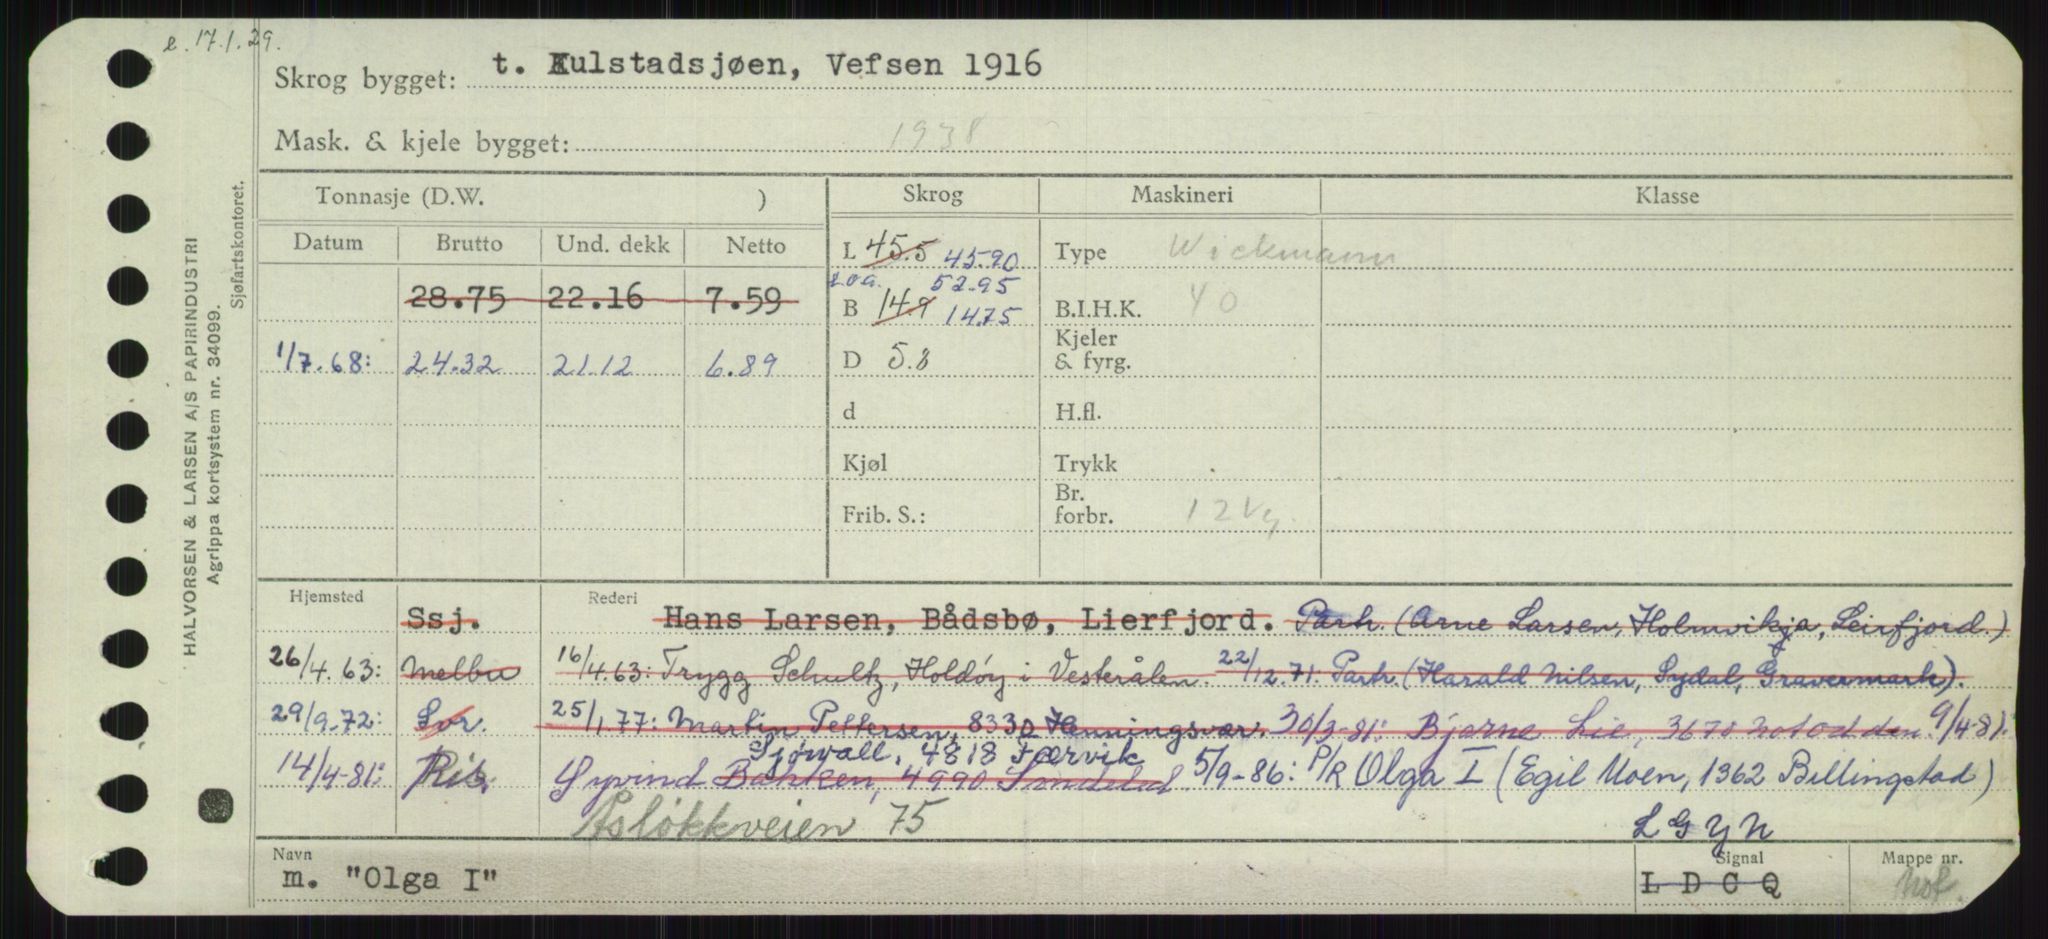 e. 17.1.29.
Skrog bygget: t. Kulstadsjøen, Vefsen 1916
Mask. & kjele bygget: 1938
HALVORSEN & LARSEN A/S PAPIRINDUSTRI
Agrippa kortsystem nr. 34099.
Sjøfartskontoret.
Tonnasje (D.W. ) Skrog Maskineri Klasse
Datum Brutto Und. dekk Netto
L 45.5 45.90 Type Wickmann
Loa. 52.95
28.75 22.16 7.59 B 14.9 14.75 B.I.H.K. 40
1/7.68: 24.32 21.12 6.89 D 5.8 Kjeler & fyrg.
d H.fl.
Kjøl Trykk
Frib. S.: Br. forbr. 12 Vg.
Hjemsted Ssj. Rederi Hans Larsen, Bådsbø, Lierfjord. Partr. (Arne Larsen, Holmvikja, Leirfjord.)
26/4.63: Melbu 16/4.63: Trygg Schultz, Holdøy i Vesterålen. 22/12.71. Partr. (Harald Nilsen, Sydal, Gravermark).
29/9.72: Svr. 25/1.77: Martin Pettersen, 8330 Henningsvær. 30/3-81: Bjarne Lie, 3670 Notodden. 9/4-81:
Sjøvall, 4818 Færvik
14/4-81: Ris. Øyvind Bakken, 4990 Søndeled 5/9-86: P/R Olga I (Egil Moen, 1362 Billingstad)
Asløkkveien 75
L G Y N
Navn m. "Olga I" Signal L D C Q Mappe nr. Nof.